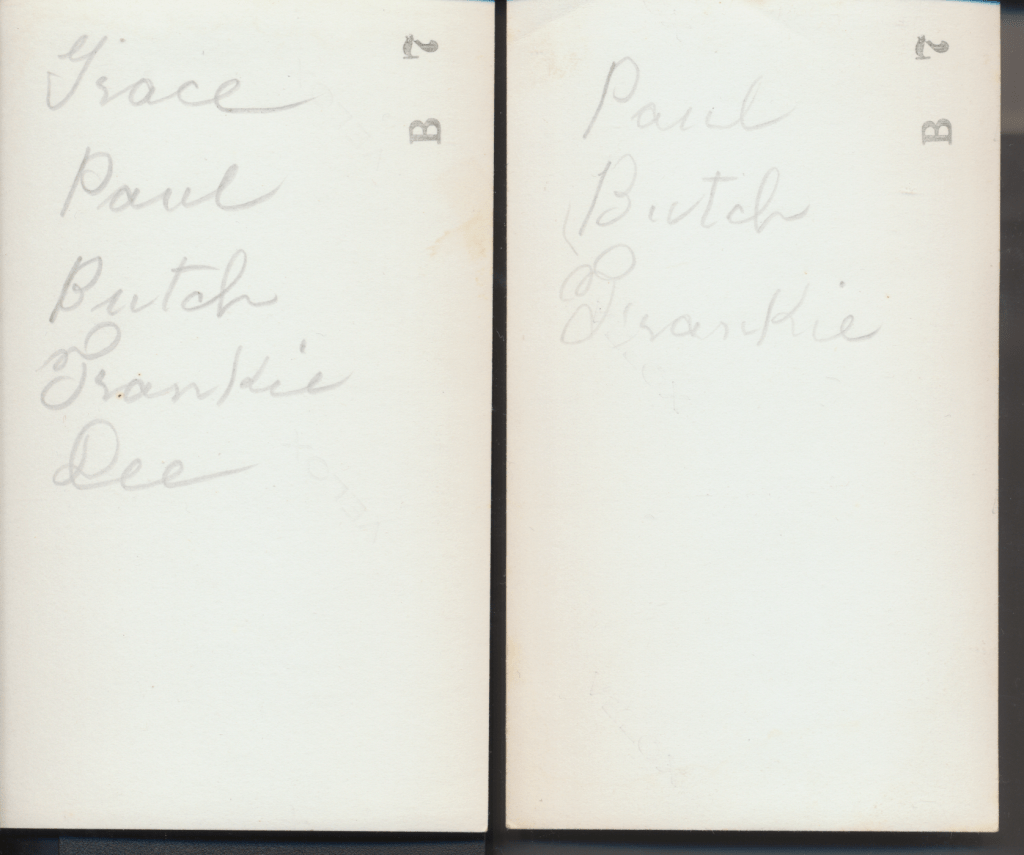 Grace
Paul
Butch
Frankie
Dee
7 B
Paul
Butch
Frankie
7 B